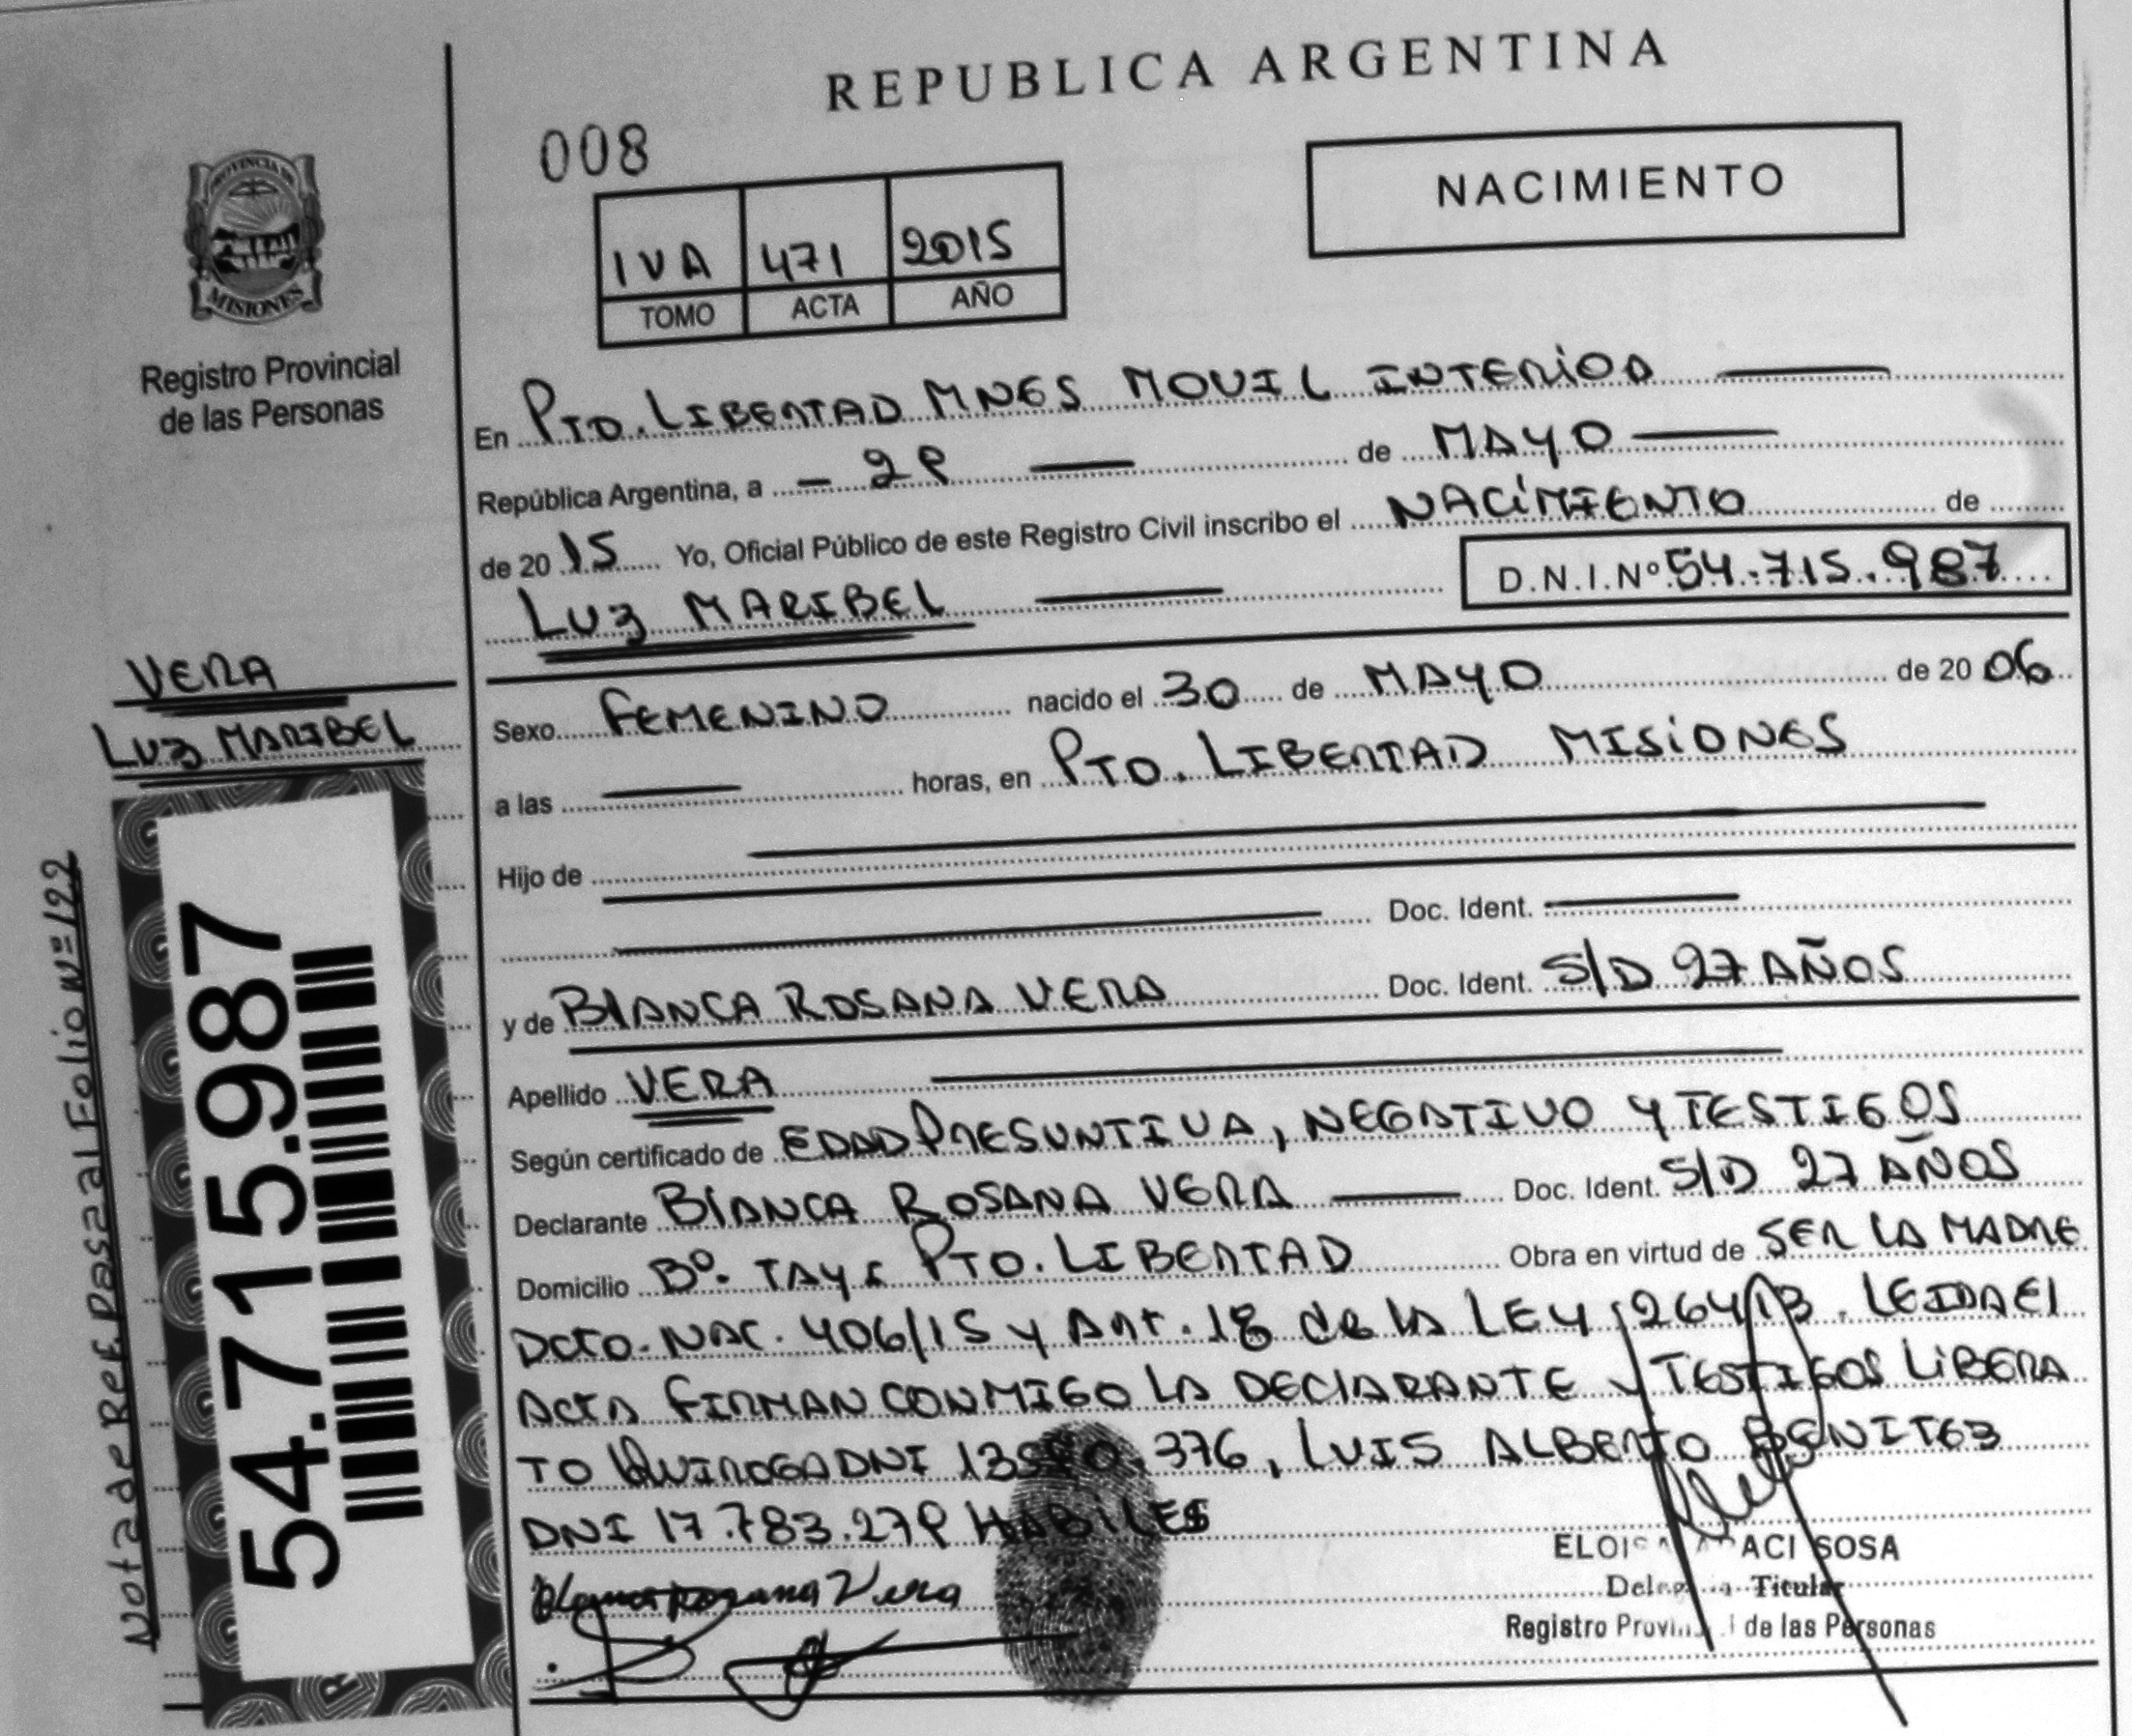 REPUBLICA ARGENTINA
008
NACIMIENTO
IVA 471 2015
TOMO ACTA AÑO
PROVINCIA DE
MISIONES
Registro Provincial
de las Personas
En PTO. LIBERTAD MNES MOVIL INTERIOR
República Argentina, a - 29 de MAYO
de 2015 Yo, Oficial Público de este Registro Civil inscribo el NACIMIENTO de
LUZ MARIBEL D.N.I.Nº 54.715.987
VERA
LUZ MARIBEL
Sexo FEMENINO nacido el 30 de MAYO de 2006
a las horas, en PTO. LIBERTAD MISIONES
Hijo de
Doc. Ident.
y de BLANCA ROSANA VERA Doc. Ident. S/D 27 AÑOS
Apellido VERA
Según certificado de EDAD PRESUNTIVA, NEGATIVO Y TESTIGOS
Declarante BLANCA ROSANA VERA Doc. Ident. S/D 27 AÑOS
Domicilio Bº. TAYI PTO. LIBERTAD Obra en virtud de SER LA MADRE
DCTO. NAC. 406/15 Y ART. 18 de la LEY 26413. LEIDA EL
ACTA FIRMAN CONMIGO LA DECLARANTE Y TESTIGOS LIBERA
TO QUIROGA DNI 376, LUIS ALBERTO BENITEZ
DNI 17.783.279 HABILES
Blanca Rosana Vera
SOSA
Titular
Registro de las Personas
54.715.987
Nota de Ref. Pasa al Folio Nº 122